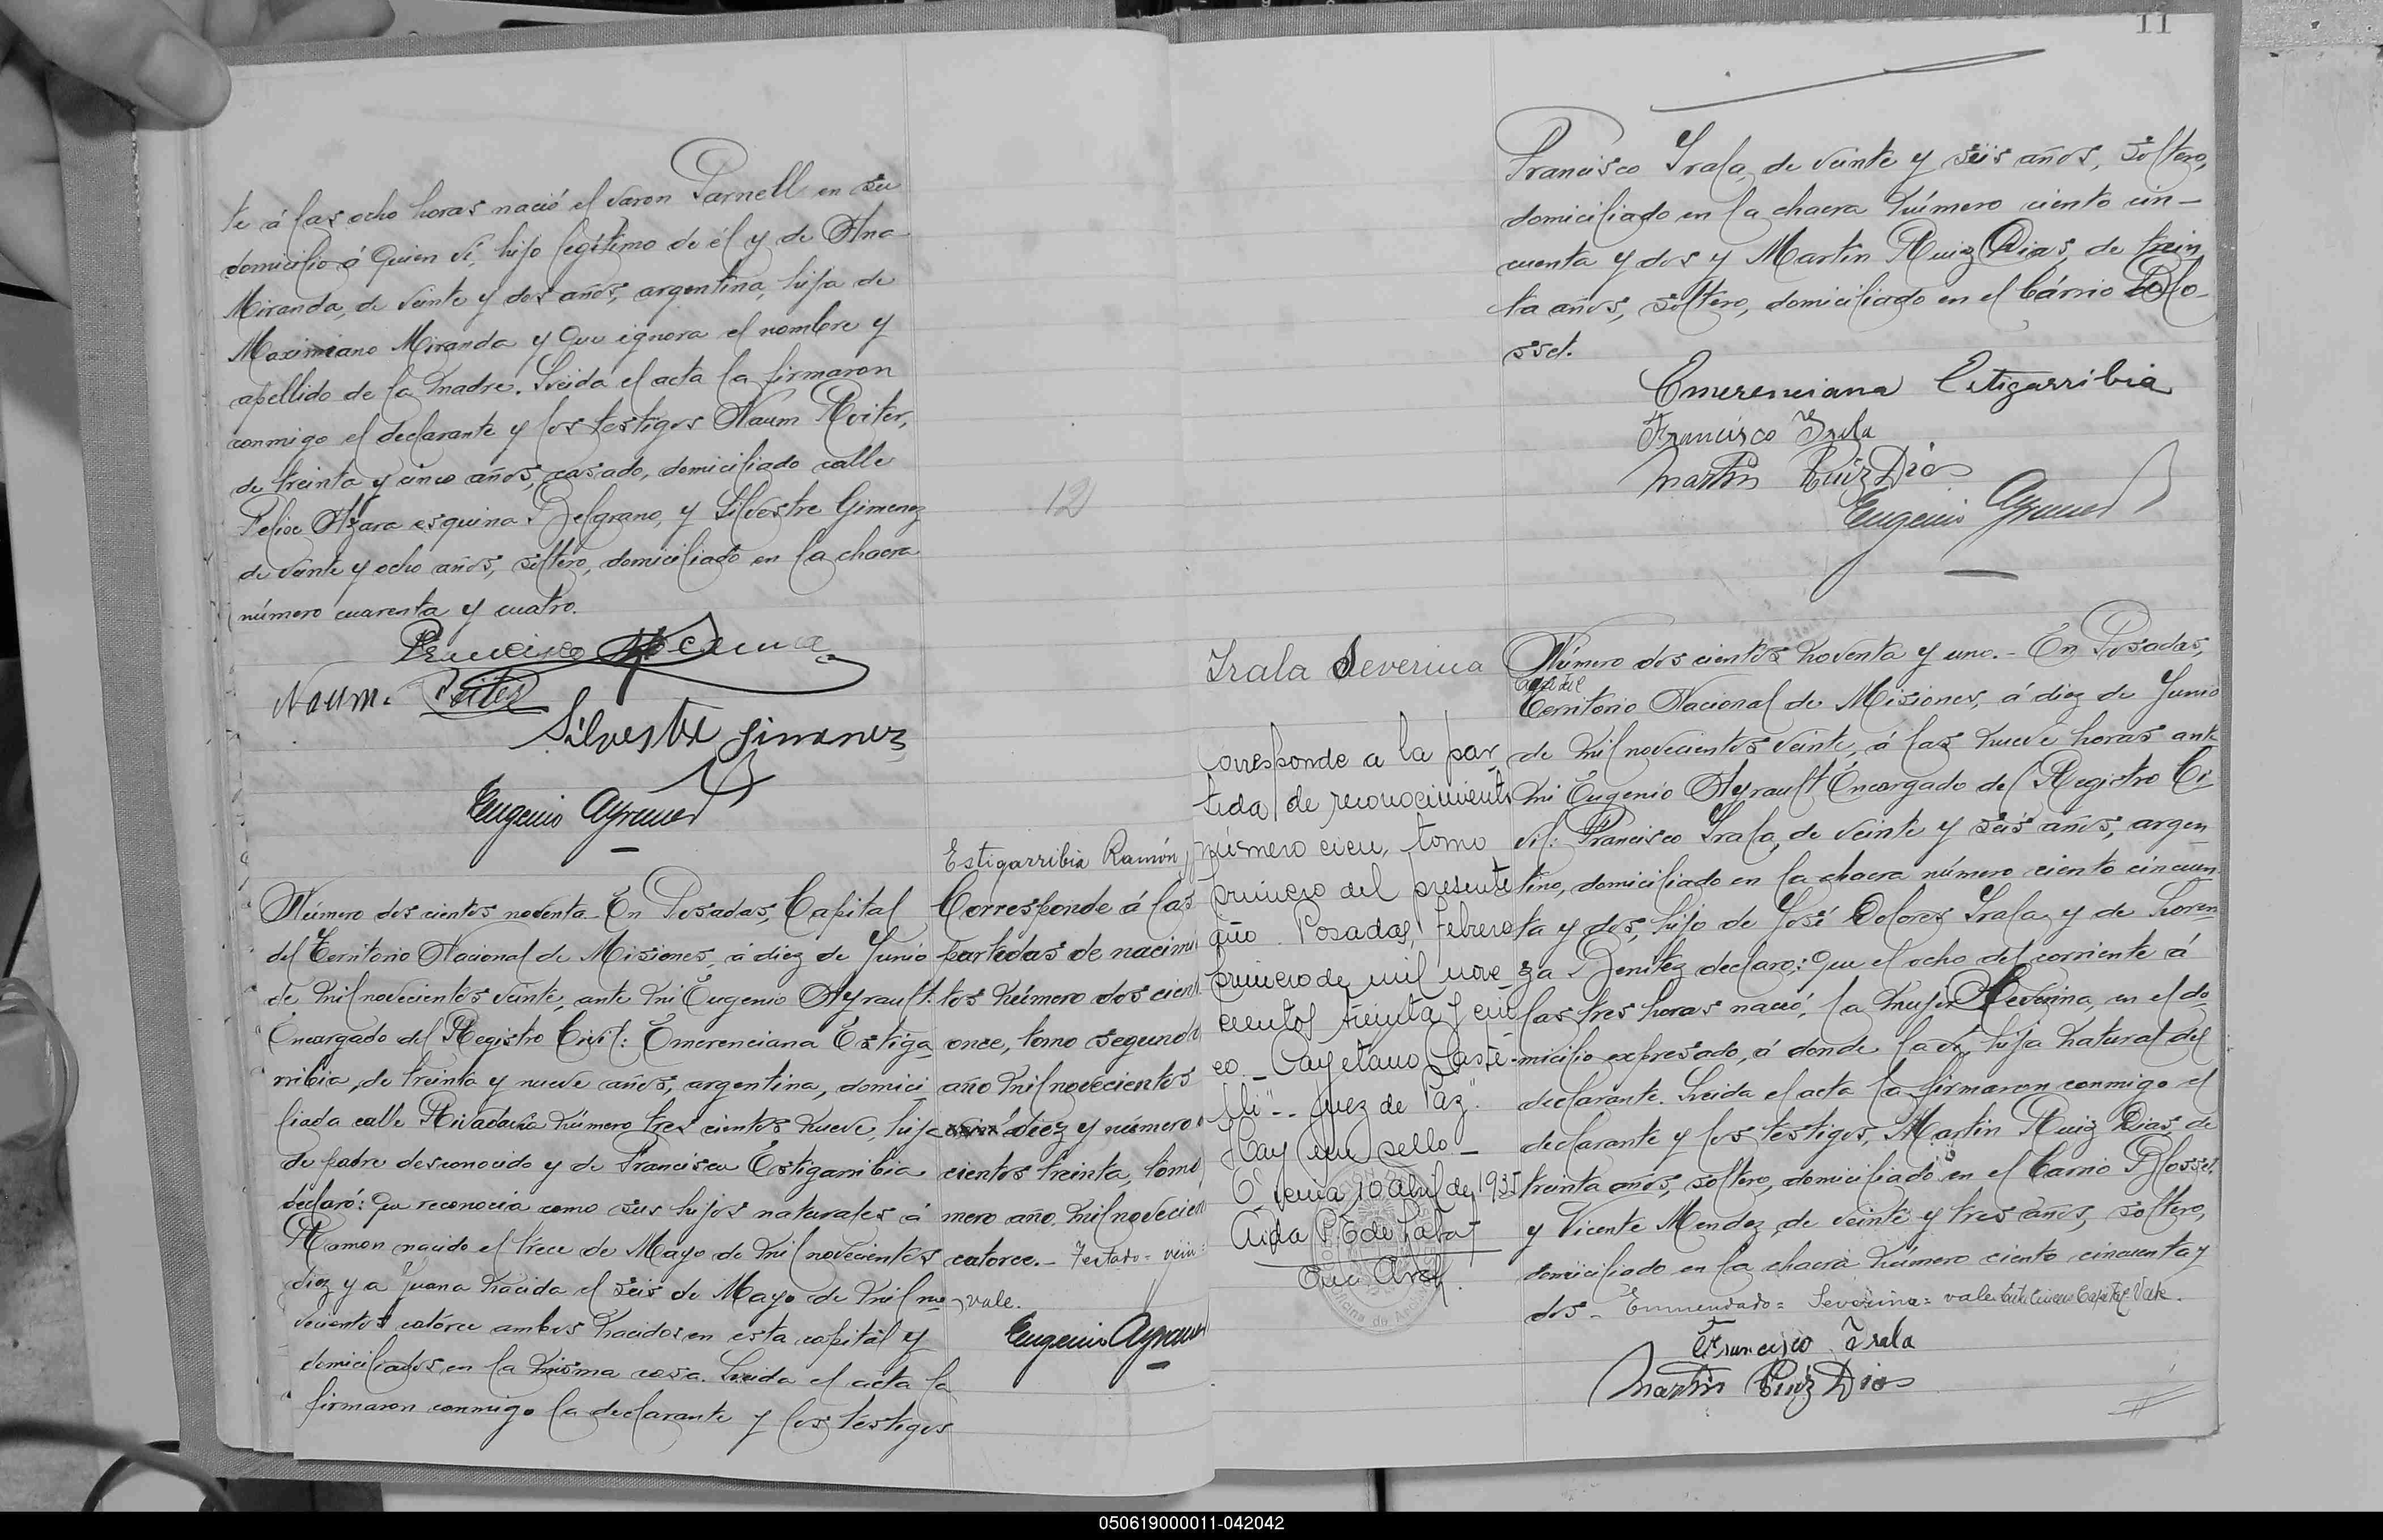 te á las ocho horas nació el varon Parnell en su
domicilio á quien ví, hijo legítimo de él y de Ana
Miranda, de veinte y dos años, argentina, hija de
Maximiano Miranda y que ignora el nombre y
apellido de la madre. Leida el acta la firmaron
conmigo el declarante y los testigos Naum Roiter,
de treinta y cinco años, casado, domiciliado calle
Felix Azara esquina Belgrano, y Silvestre Gimenez
de veinte y ocho años, soltero, domiciliado en la chacra
número cuarenta y cuatro.
Francisco
Naum. Roiter
Silvestre Jimenez
Eugenio Ayrault
Número dos cientos noventa. En Posadas, Capital
del Territorio Nacional de Misiones, á diez de Junio
de mil novecientos veinte, ante mi Eugenio Ayrault
Encargado del Registro Civil: Emerenciana Estiga
rribia, de treinta y nueve años, argentina, domici
liada calle Rivadavia número tres cientos nueve, hija
de padre desconocido y de Francisca Estigarribia
declaró: Que reconocia como sus hijos naturales á
Ramon nacido el trece de Mayo de mil novecientos
diez y a Juana nacida el seis de Mayo de mil no-
vecientos catorce ambos nacidos en esta capital y
domiciliados en la misma casa. Leida el acta la
firmaron conmigo la declarante y los testigos
12
Estigarribia Ramón
Corresponde á las
partidas de nacimi
tos número dos cient
once, tomo segundo
año mil novecientos
diez y número
cientos treinta, tomo
mero año mil novecien
catorce. - Testado = vein
vale.
Eugenio Ayrault
11
Francisco Irala, de veinte y seis años, soltero,
domiciliado en la chacra número ciento cin-
cuenta y dos y Martin Ruiz Dias, de trein
ta años, soltero, domiciliado en el bárrio Blo-
sset.
Emerenciana Estigarribia
Francisco Irala
Martin Ruiz Dias
Eugenio Ayrault
Irala Severina
Corresponde a la par-
tida de reconocimiento
número cien, tomo
primero del presente
año. Posadas, Febrero
primero de mil nove-
cientos treinta y cin
co. - Cayetano Caste-
lli" - Juez de Paz".
Hay un sello. -
10 abril de 1935
Aida P. E de
Número dos cientos noventa y uno. - En Posadas,
Capital del
Territorio Nacional de Misiones, á diez de Junio
de mil novecientos veinte, á las nueve horas ante
mi Eugenio Ayrault Encargado del Registro Ci
vil: Francisco Irala, de veinte y seis años, argen
tino, domiciliado en la chacra número ciento cincuen
ta y dos, hijo de José Dolores Irala y de Loren
za Benitez declaro: Que el ocho del corriente á
las tres horas nació, la mujer Severina, en el do
micilio expresado, á donde la ví, hija natural del
declarante. Leida el acta la firmaron conmigo el
declarante y los testigos, Martin Ruiz Dias, de
treinta años, soltero, domiciliado en el barrio Blosset.
y Vicente Mendez, de veinte y tres años, soltero,
domiciliado en la chacra número ciento cincuenta y
dos - Enmendado = Severina = vale. Entre lineas Capital Vale.
Francisco Irala
Martin Ruiz Dias
050619000011-042042